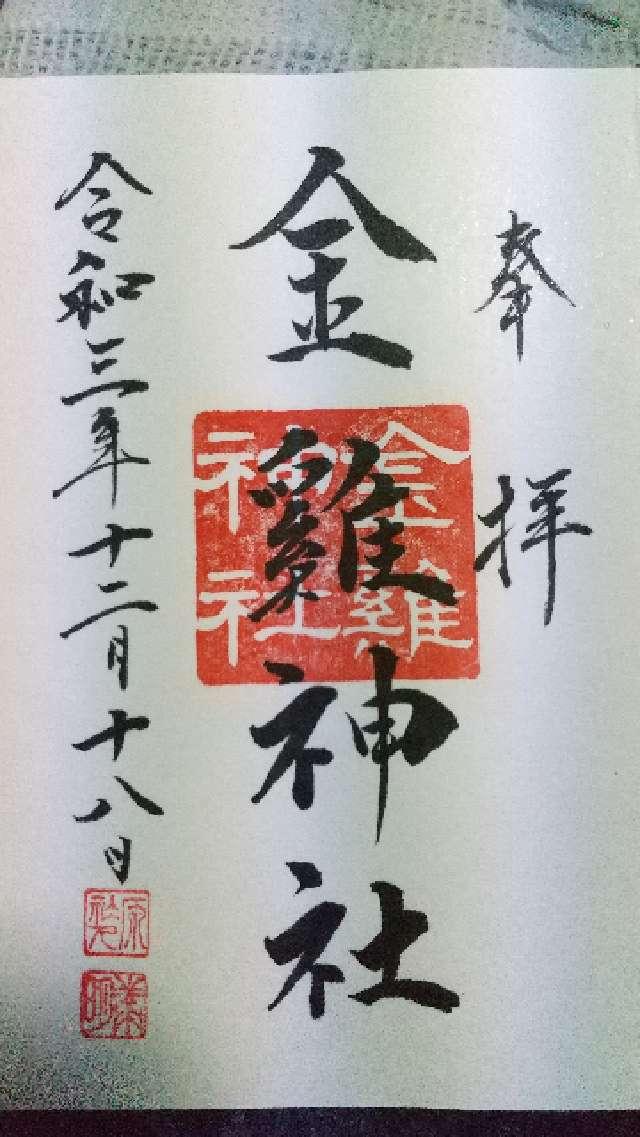 奉拝
金雞神社
金雞神社
令和三年十二月十八日